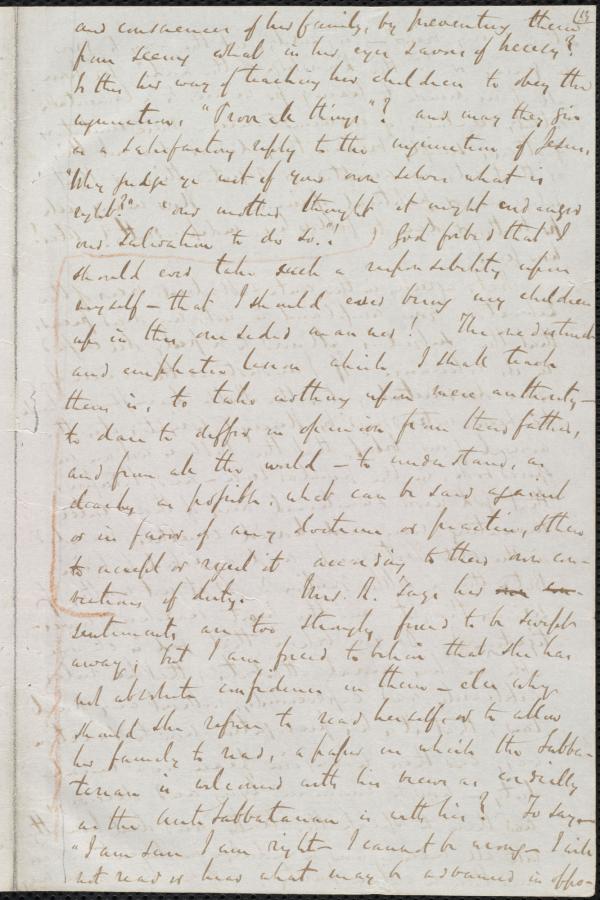 (13
and consciences of her family, by preventing them
from seeing what in her eyes savors of heresy?
Is this her way of teaching her children to obey the
injunction, "Prove all things"? and may they give
as a satisfactory reply to the injunction of Jesus,
"Why judge ye not of your own selves what is
right?" "our mother thought it might endanger
our salvation to do so."! God forbid that I
should ever take such a responsibility upon
myself — that I should ever bring my children
up in this one sided manner! The one distinct
and emphatic lesson which I shall teach
them is, to take nothing upon mere authority —
to dare to differ in opinion from their father,
and from all the world — to understand, as
clearly as possible, what can be said against
or in favor of any doctrine or practice, & then
to accept or reject it according to their own con-
victions of duty. Mrs. R. says her
sentiments are too strongly fixed to be swept
away; but I am forced to believe that she has
not absolute confidence in them — else why
should she refuse to read herself, or to allow
her family to read, a paper in which the Sabba-
tarian is welcomed with his views as cordially
as the anti-Sabbatarian is with his? To say —
"I am sure I am right — I cannot be wrong — I will
not read or hear what may be advanced in oppo-